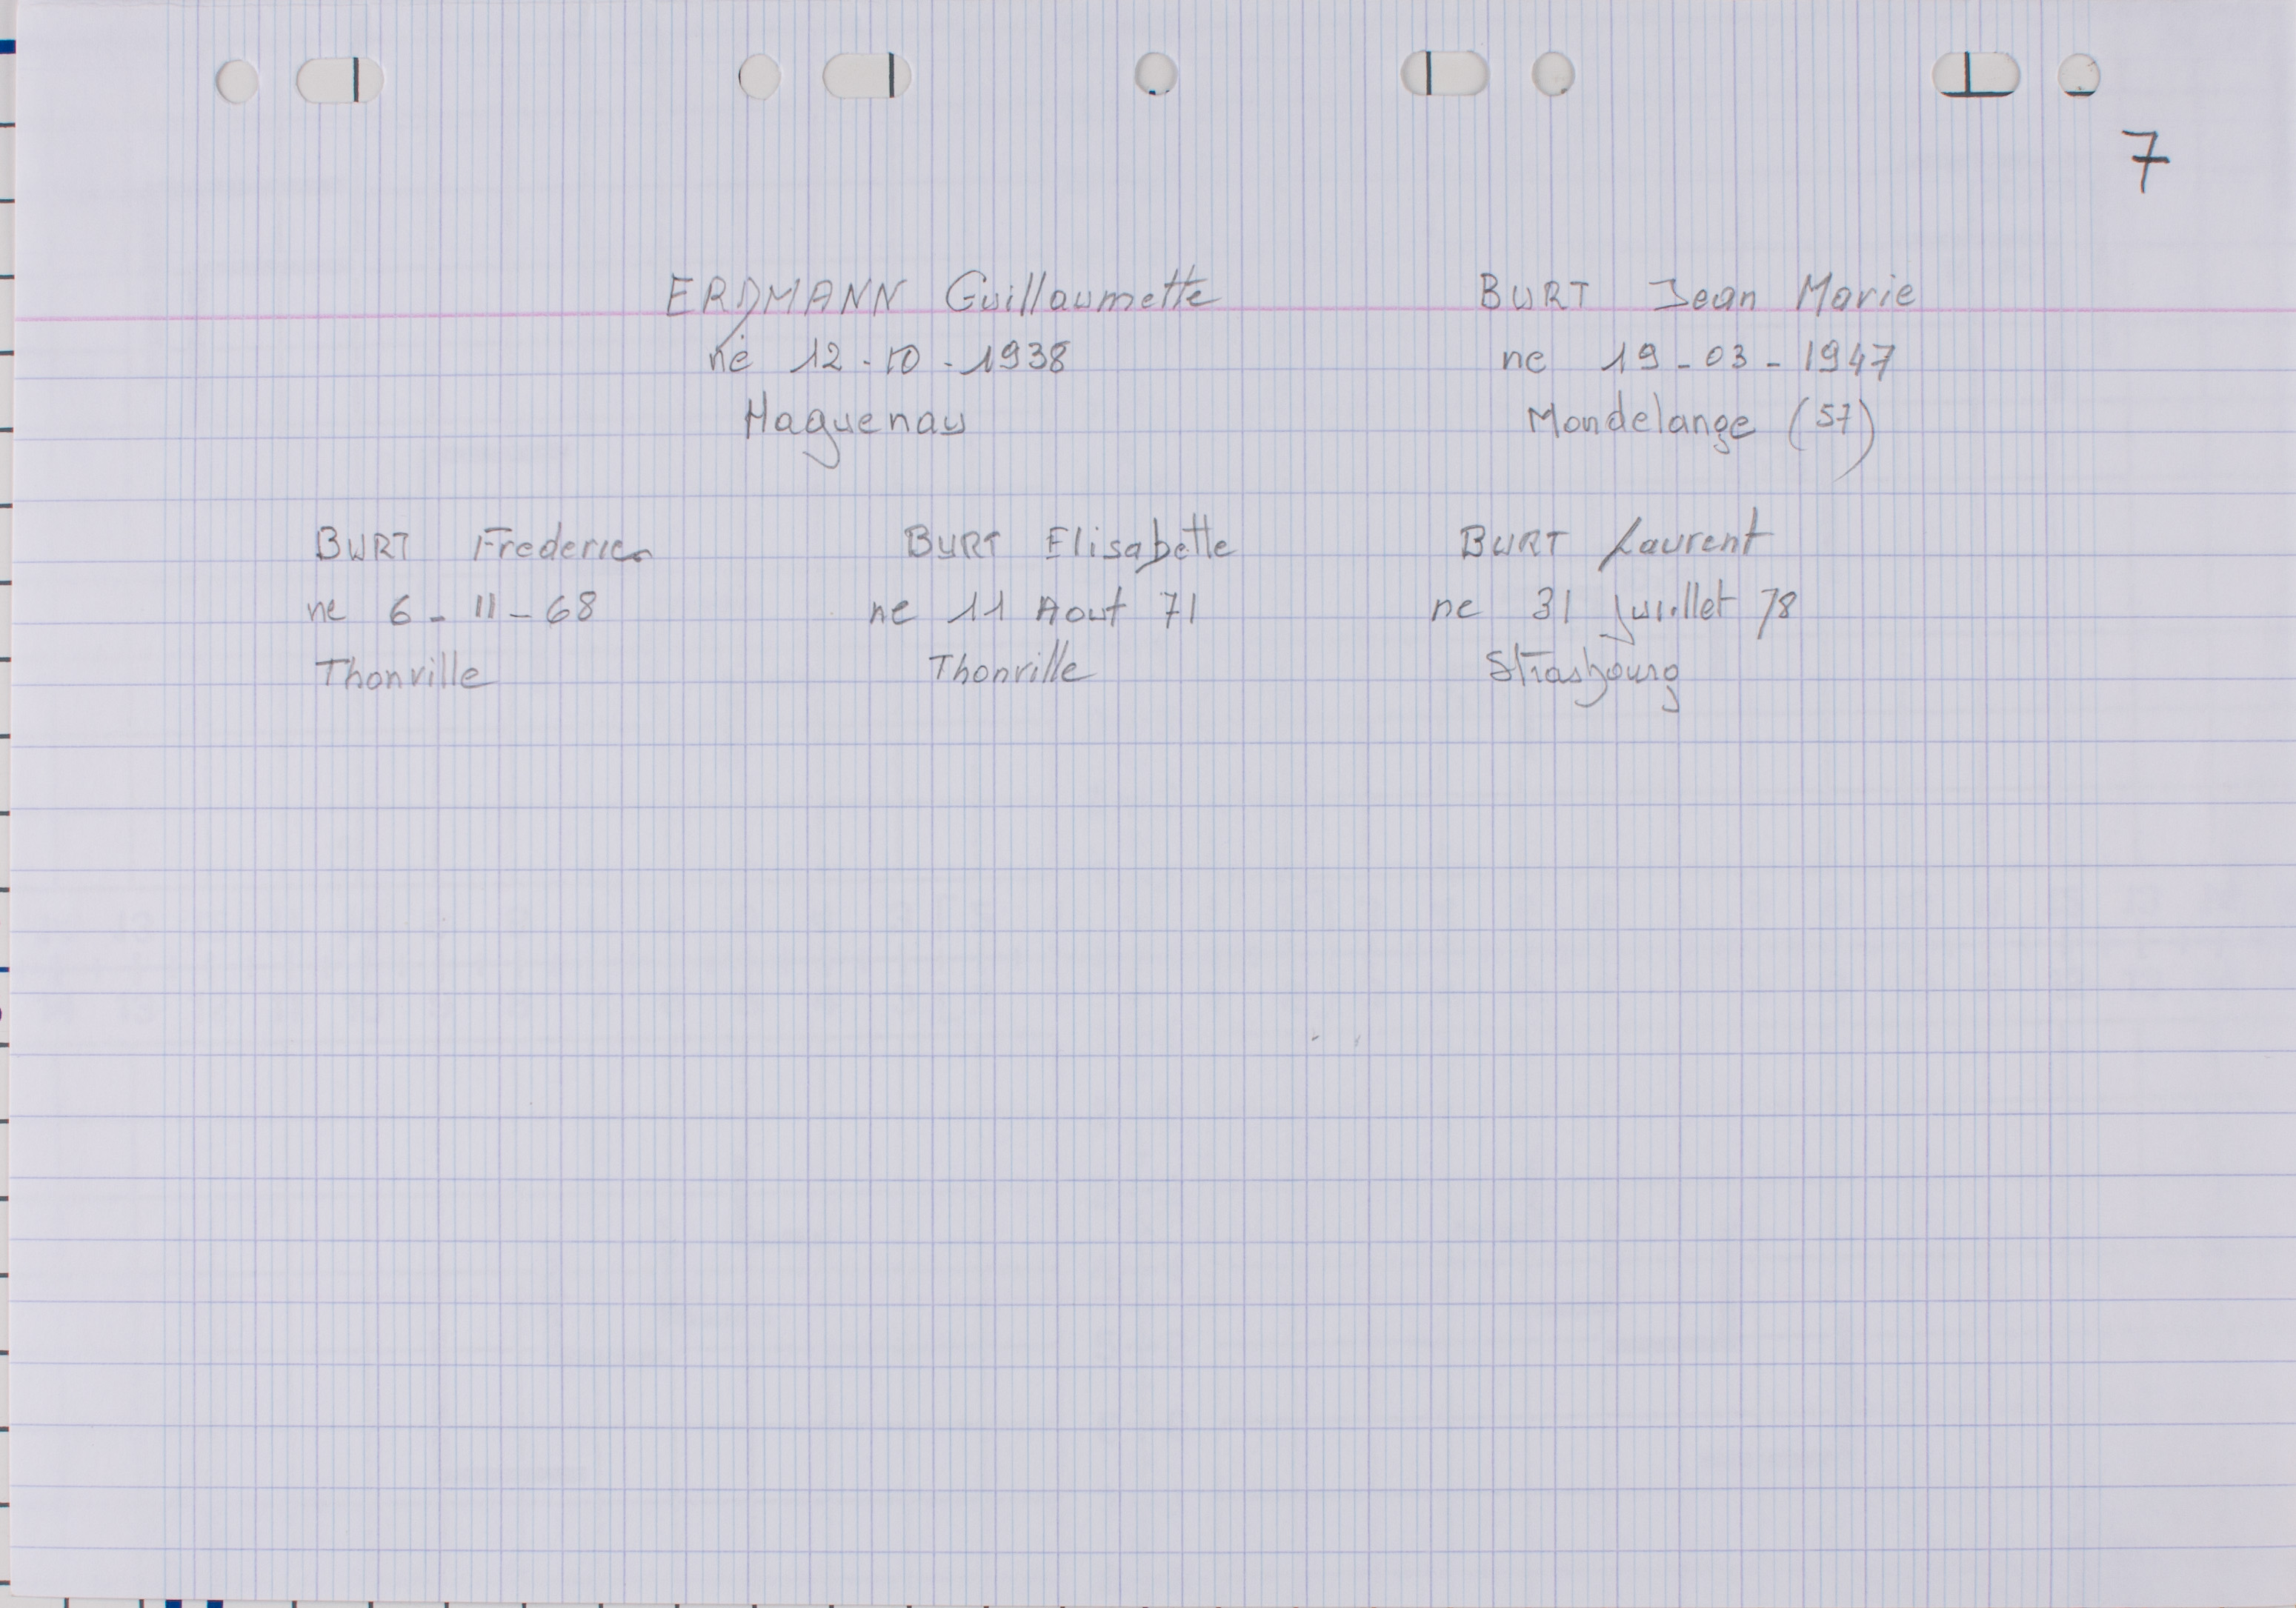 7
ERDMANN Guillaumette
né 12-10-1938
Haguenau
BURT Jean Marie
ne 19-03-1947
Mondelange (57)
BURT Frederic
ne 6-11-68
Thonville
BURT Elisabette
ne 11 Aout 71
Thonville
BURT Laurent
ne 31 Juillet 78
Strasbourg